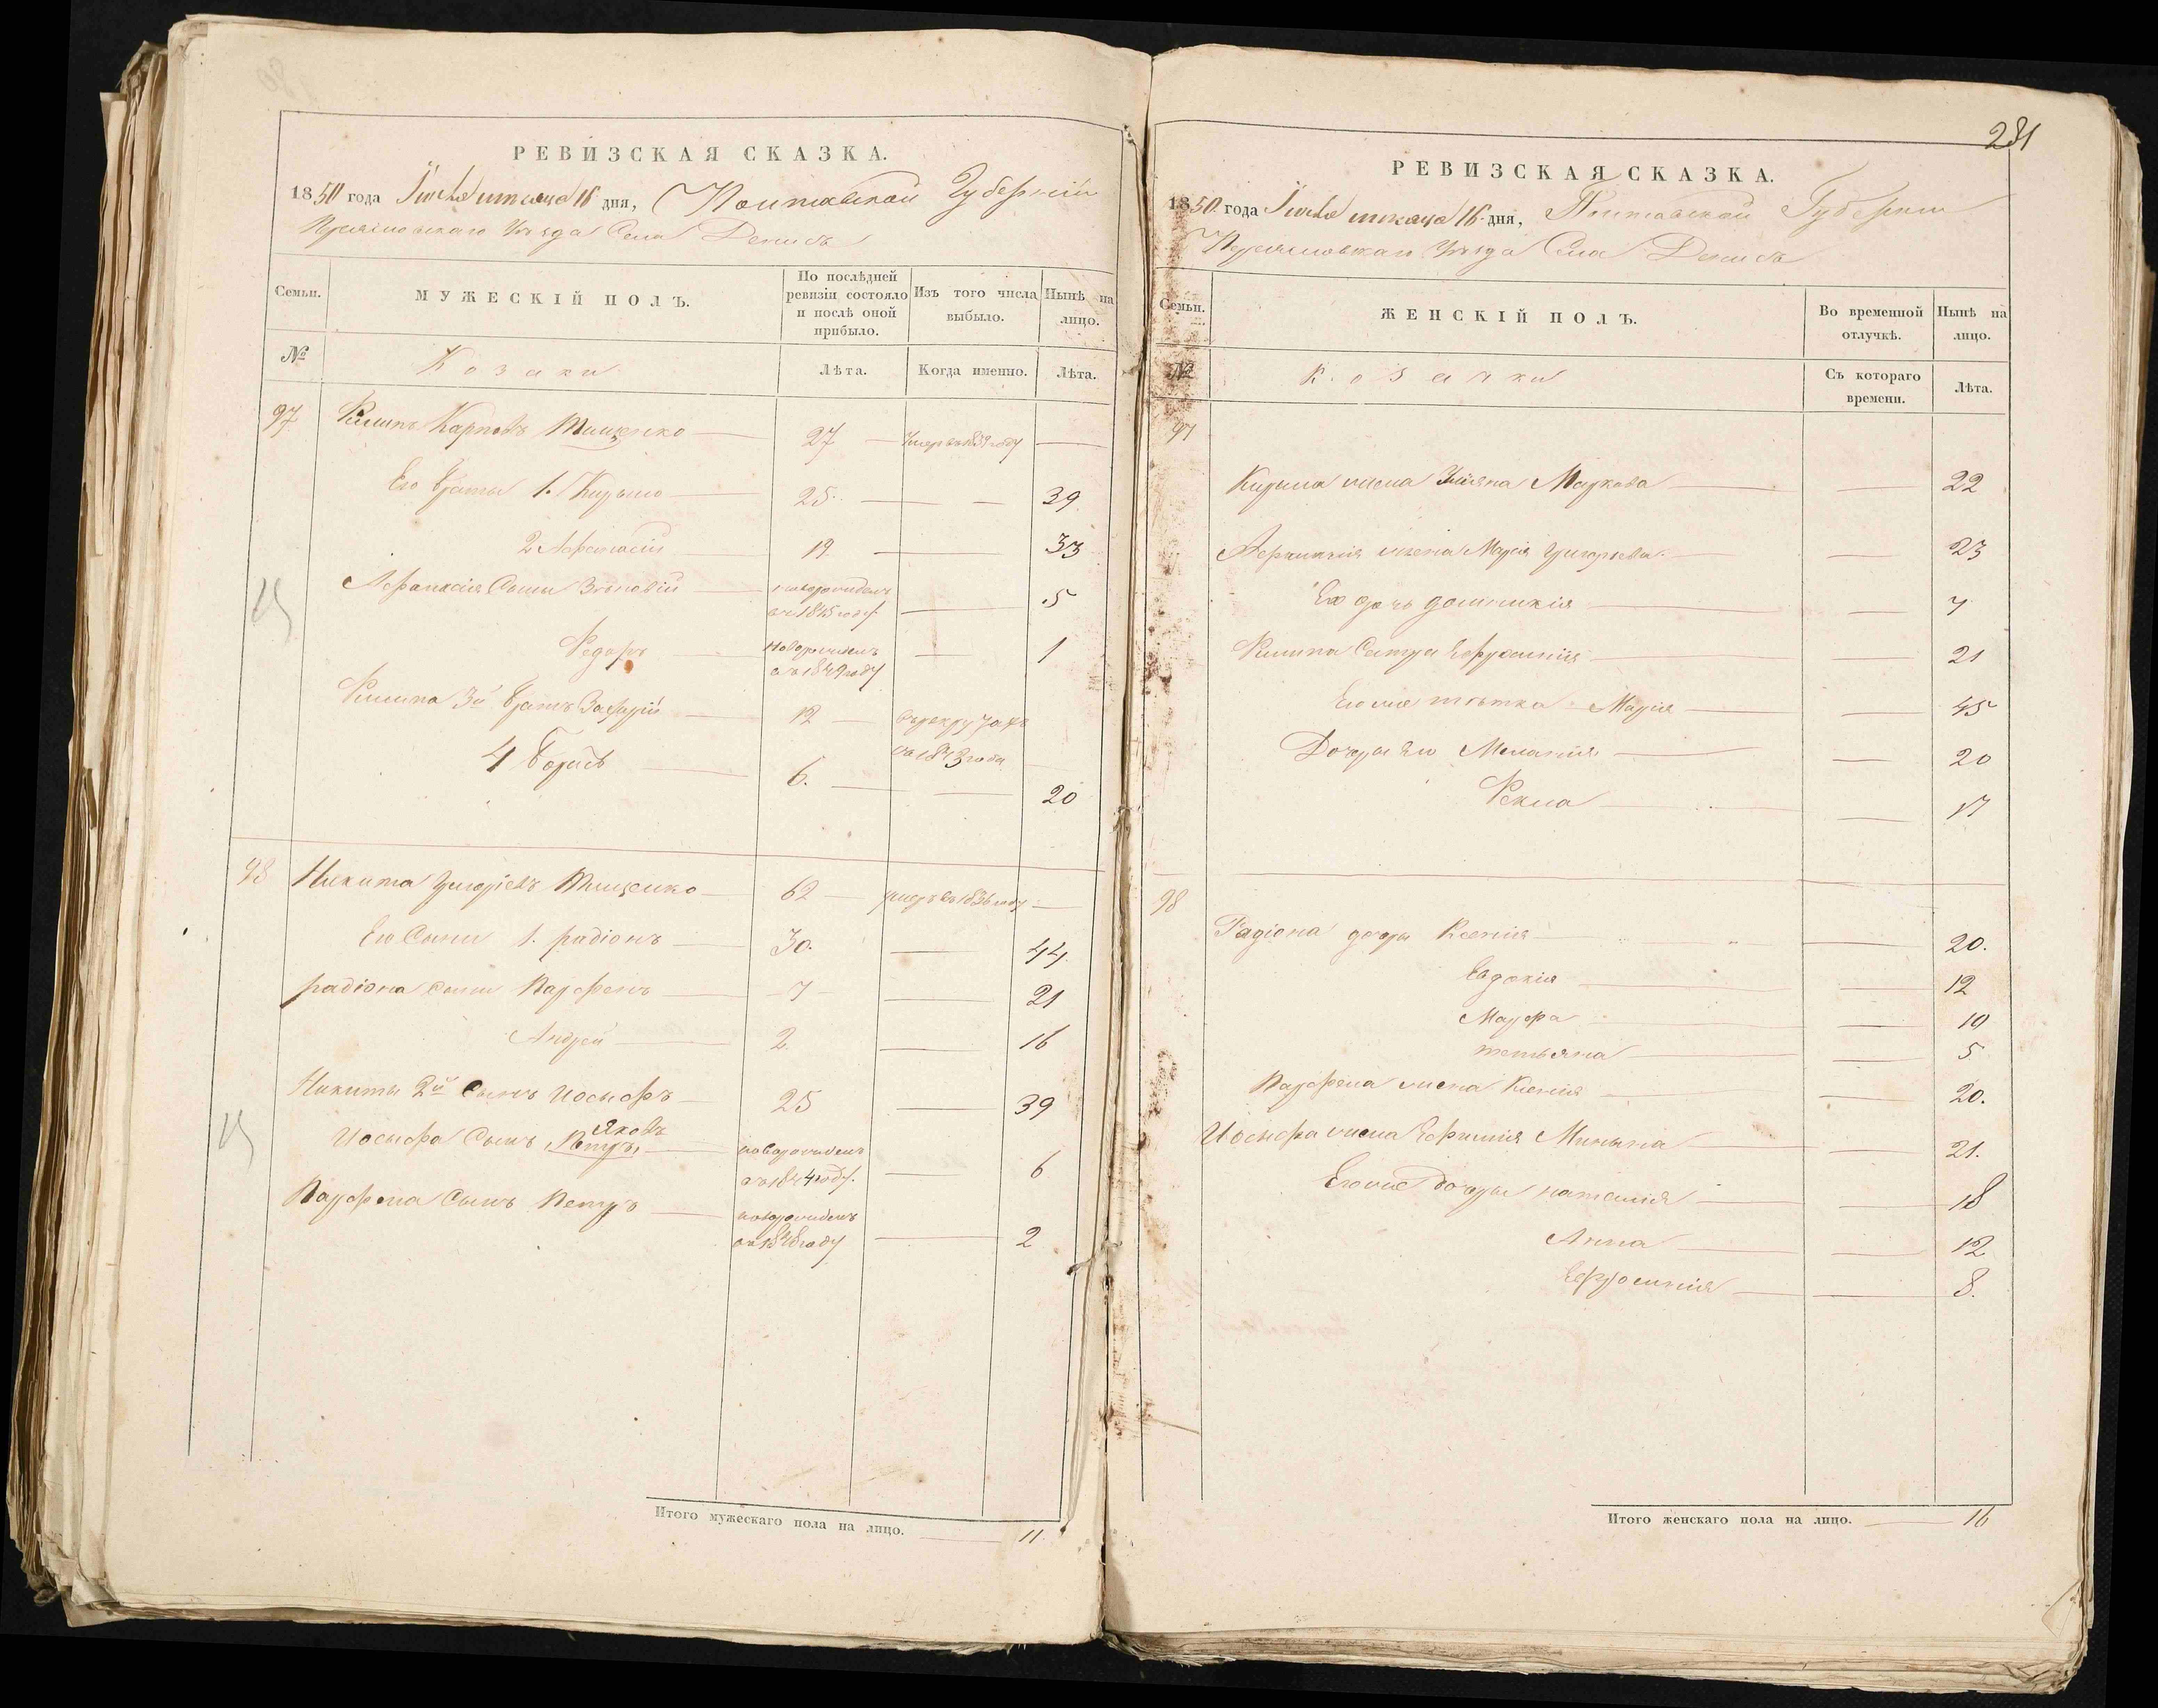 РЕВИЗСКАЯ СКАЗКА.
1850 года Июля месяца 16 дня, Полтавской Губерніи
Переяславскаго Уезда Села Денисъ
Семьи.
МУЖЕСКІЙ ПОЛЪ.
По послѣдней ревизіи состояло и послѣ оной прибыло.
Изъ того числа выбыло.
Нынѣ на лицо.
№
Козаки
Лѣта.
Когда именно.
Лѣта.
97 Филипъ Карповъ Тищенко 27 умеръ въ 1839 году
Его братья 1. Кирыло 25 39
2 Афанасій 19 33
Афанасія Сыны Зѣновій новорожденъ въ 1845 году 5
Федоръ новорожденъ въ 1849 году 1
Филипа 3й братъ Захарій 12 въ рекрутахъ съ 1843 года
4 Борисъ 6. 20
98 Никита Григоріевъ Тищенко 62 умеръ въ 1836 году
Его Сыны 1. радіонъ 30. 44.
радіона сыны Парфенъ 7 21
Андрей 2 16
Никиты 2й Сынъ Иосыфъ 25 39
Яковъ
Иосыфа Сынъ Петръ новорожденъ въ 1844 году. 6
Парфена Сынъ Петръ новорожденъ въ 1848 году 2
Итого мужескаго пола на лицо. 11.
281
РЕВИЗСКАЯ СКАЗКА.
1850 года Июля месяца 16 дня, Полтавской Губерніи
Переяславскаго Уезда Села Денисъ
Семьи.
ЖЕНСКІЙ ПОЛЪ.
Во временной отлучкѣ.
Нынѣ на лицо.
№
Козачки
Съ котораго времени.
Лѣта.
97
Кирыла жена Маркова 22
Афанасія жена Марія Григорьева 23
Его дочь 7
Филипа Сестра Ефросинія 21
Его же тѣтка Марія 45
Дочери Ея Меланія 20
Фекла 17
98
Радіона дочери Ксенія 20.
Евдокія 12
Марфа 10
тетьяна 5
Парфена жена Ксенія 20.
Иосыфа жена Ефимія Минына 21.
Его же дочери наталія 18
Анна 12
Ефросинія 8.
Итого женскаго пола на лицо. 16